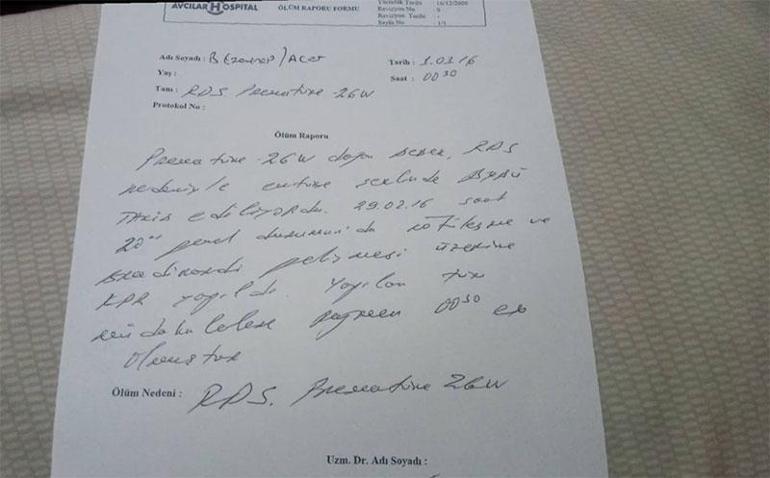 AVCILAR HOSPITAL ÖLÜM RAPORU FORMU
Yürürlük Tarihi 16/12/2008
Revizyon No 0
Revizyon Tarihi -
Sayfa No 1/1
Adı Soyadı : B (Zeynep) / Acet
Tarih : 1.03.16
Yaş :
Saat : 00 30
Tanı : RDS. Prematüre - 26W
Protokol No :
Ölüm Raporu
Prematüre 26W doğan bebek, RDS
nedeniyle entübe şekilde
Takip ediliyordu. 29.02.16 saat
20 genel durumunda kötüleşme ve
Bradikardi gelişmesi üzerine
KPR yapıldı yapılan tüm
müdahalelere rağmen 00 30 ex
olmuştur
Ölüm Nedeni : RDS. Prematüre 26W
Uzm. Dr. Adı Soyadı :